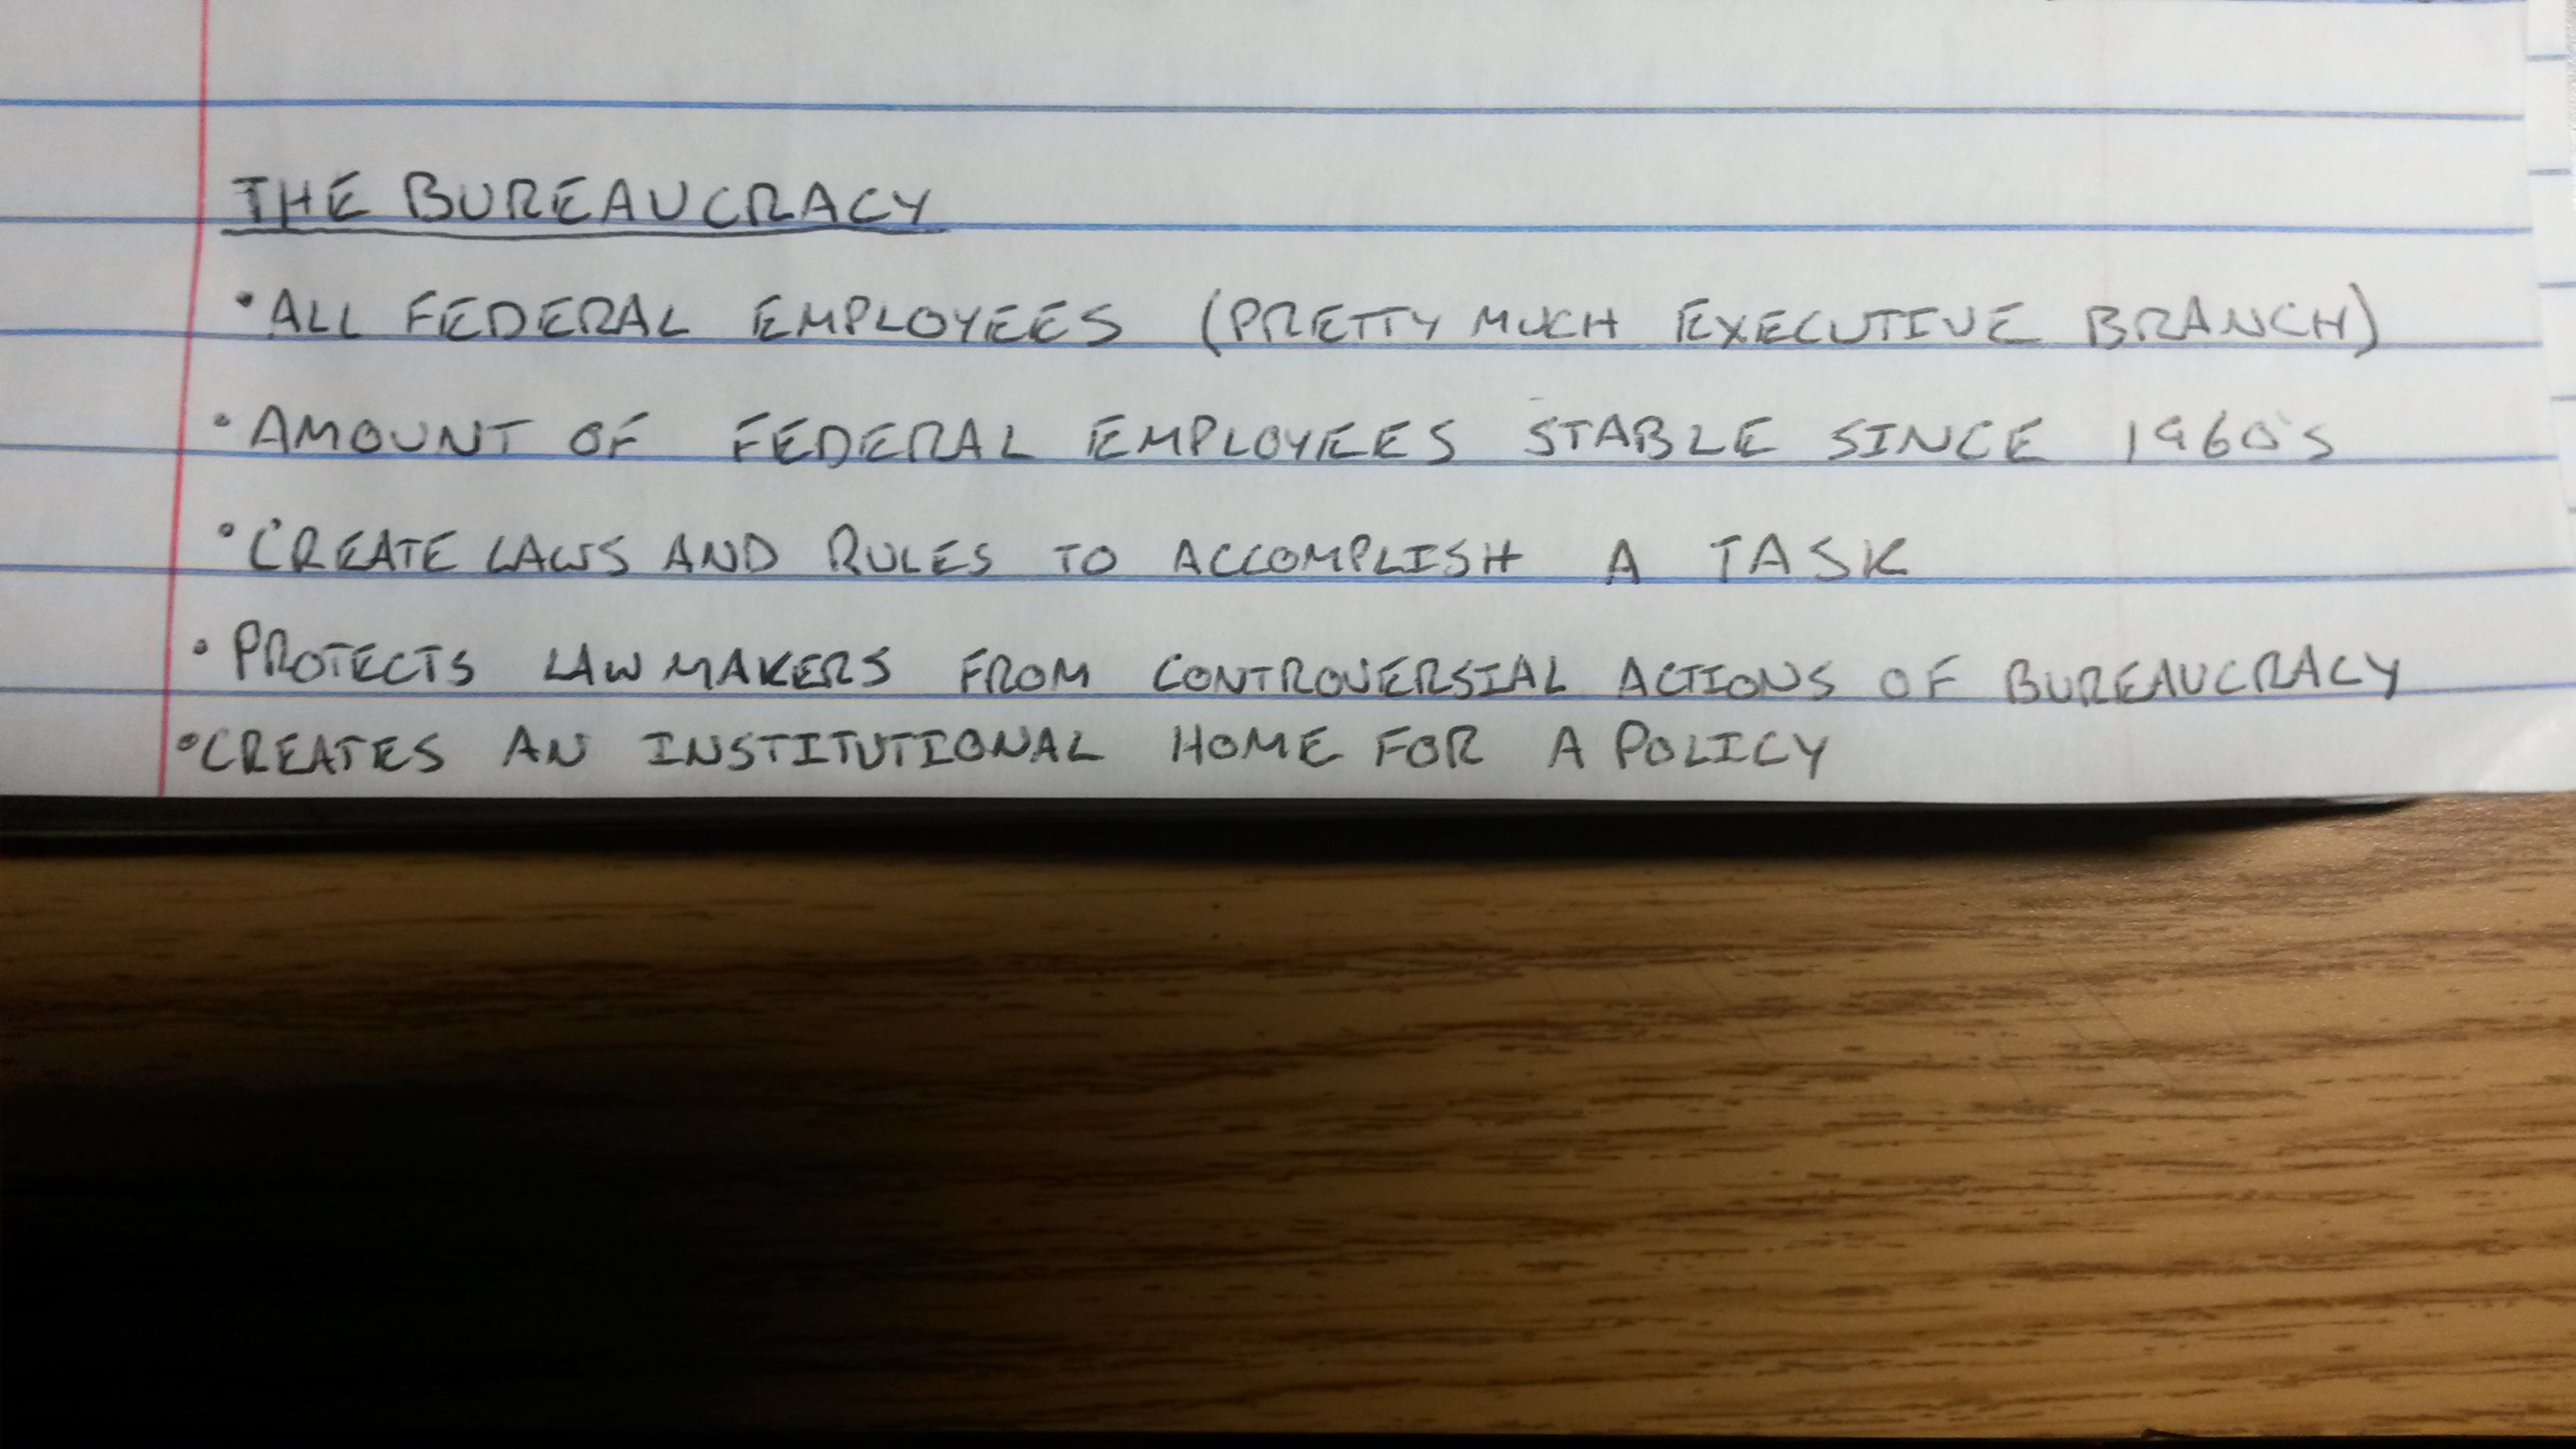 THE BUREAUCRACY
•ALL FEDERAL EMPLOYEES (PRETTY MUCH EXECUTIVE BRANCH)
•AMOUNT OF FEDERAL EMPLOYEES STABLE SINCE 1960'S
•CREATE LAWS AND RULES TO ACCOMPLISH A TASK
•PROTECTS LAWMAKERS FROM CONTROVERSIAL ACTIONS OF BUREAUCRACY
•CREATES AN INSTITUTIONAL HOME FOR A POLICY